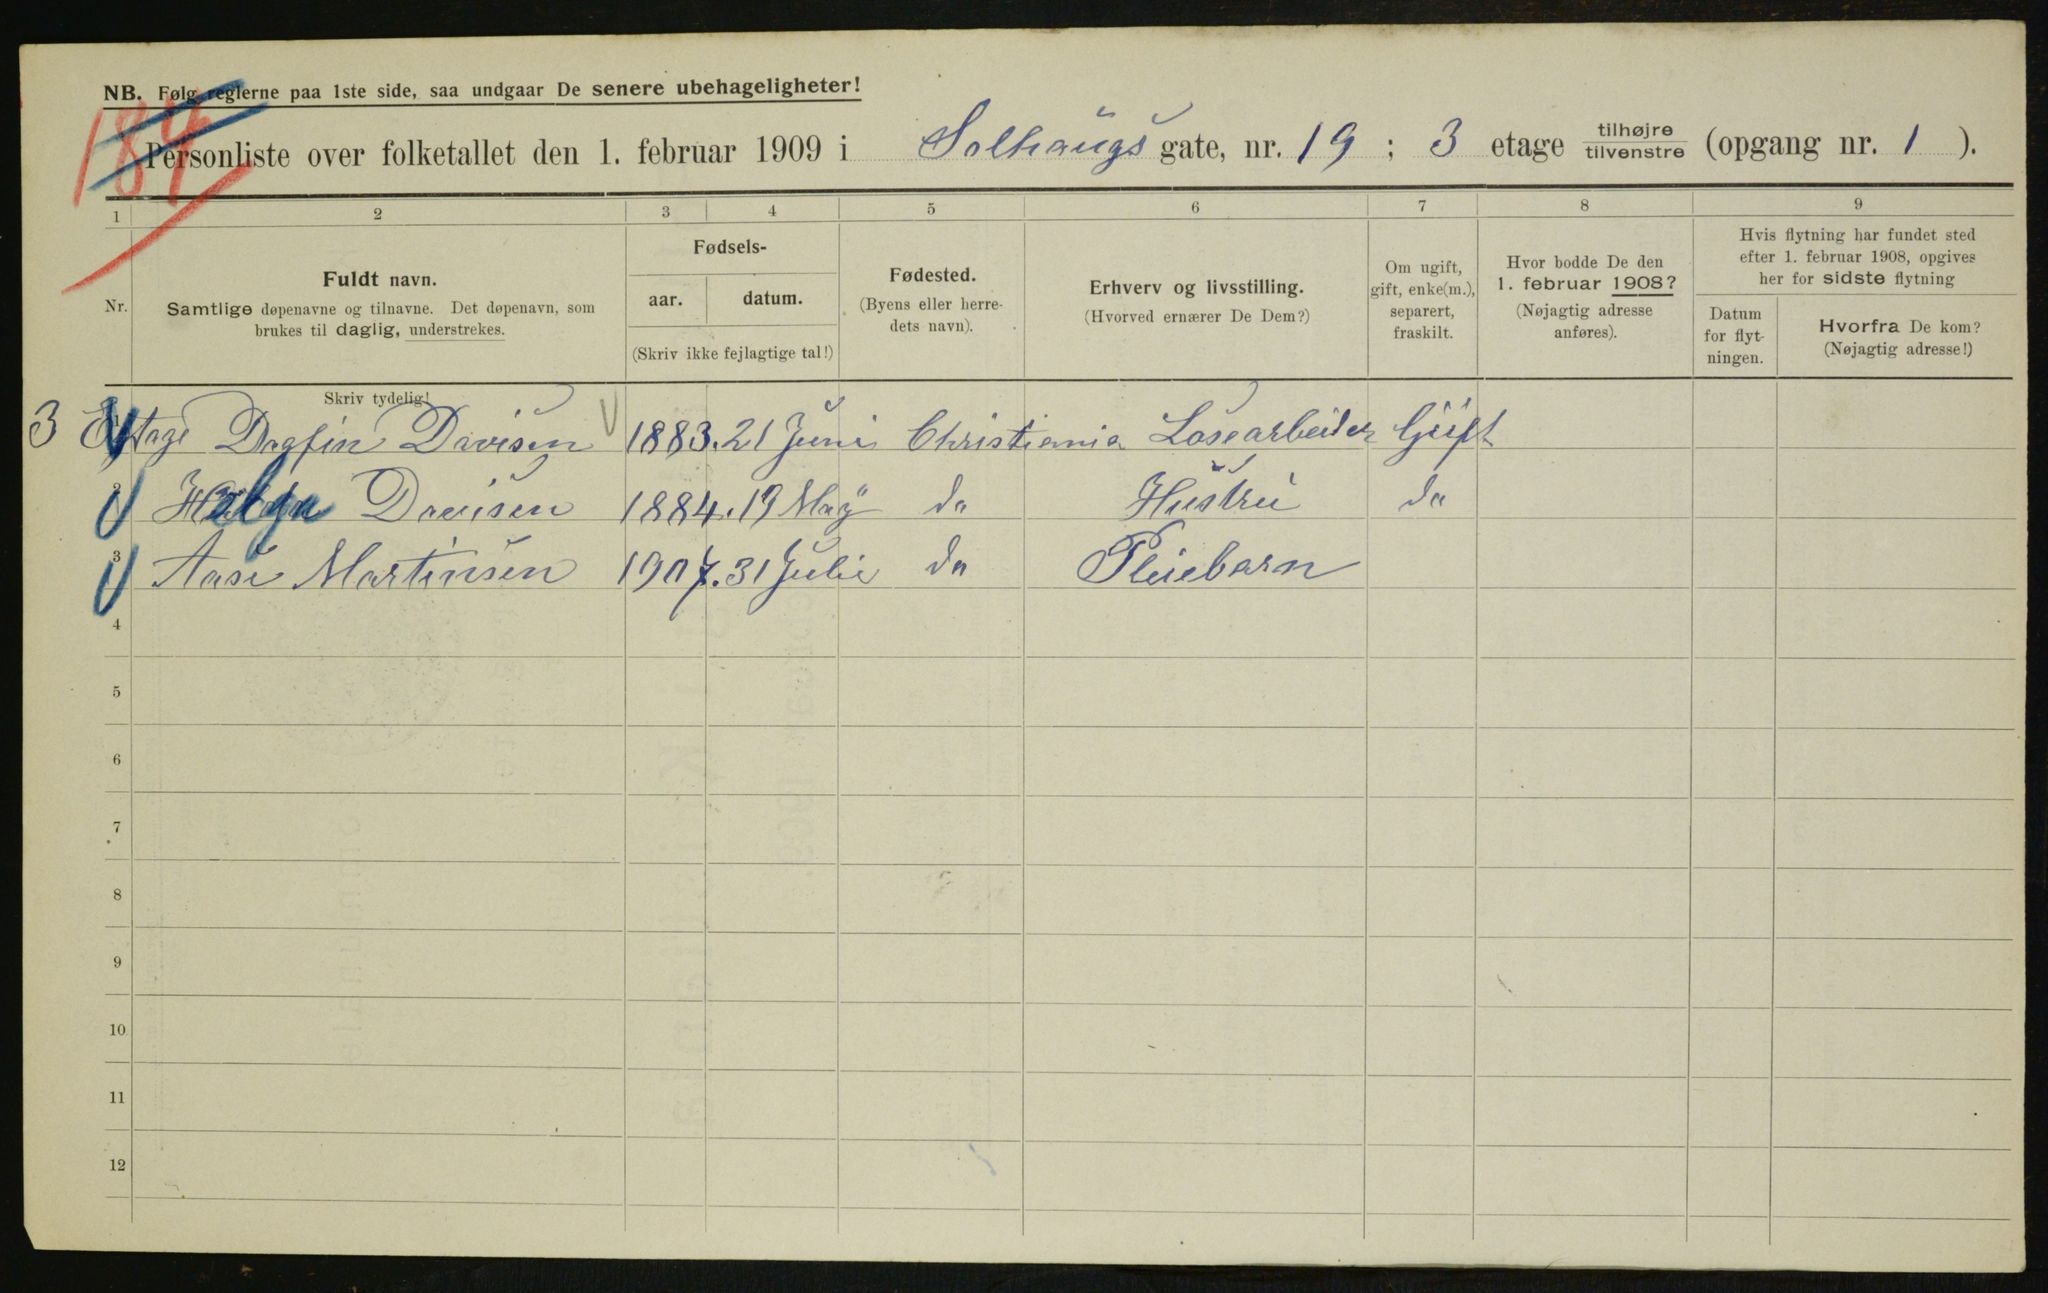 NB. Følg reglerne paa 1ste side, saa undgaar De senere ubehageligheter!
184
Personliste over folketallet den 1. februar 1909 i Solhaugs gate, nr. 19 ; 3 etage tilhøjre / tilvenstre (opgang nr. 1 ).
1 2 3 4 5 6 7 8 9
Nr.
Fuldt navn.
Samtlige døpenavne og tilnavne. Det døpenavn, som
brukes til daglig, understrekes.
Fødsels-
aar. datum.
(Skriv ikke fejlagtige tal!)
Fødested.
(Byens eller herre-
dets navn).
Erhverv og livsstilling.
(Hvorved ernærer De Dem?)
Om ugift,
gift, enke(m.),
separert,
fraskilt.
Hvor bodde De den
1. februar 1908?
(Nøjagtig adresse
anføres).
Hvis flytning har fundet sted
efter 1. februar 1908, opgives
her for sidste flytning
Datum
for flyt-
ningen.
Hvorfra De kom?
(Nøjagtig adresse!)
Skriv tydelig!
3 Etage Dagfin Davisen 1883. 21 Juni Christiania Løsearbeider Gift
2 Helga Davisen 1884. 19 May do Hustru do
3 Aase Martinsen 1907. 31 Juli do Pleiebarn
4
5
6
7
8
9
10
11
12